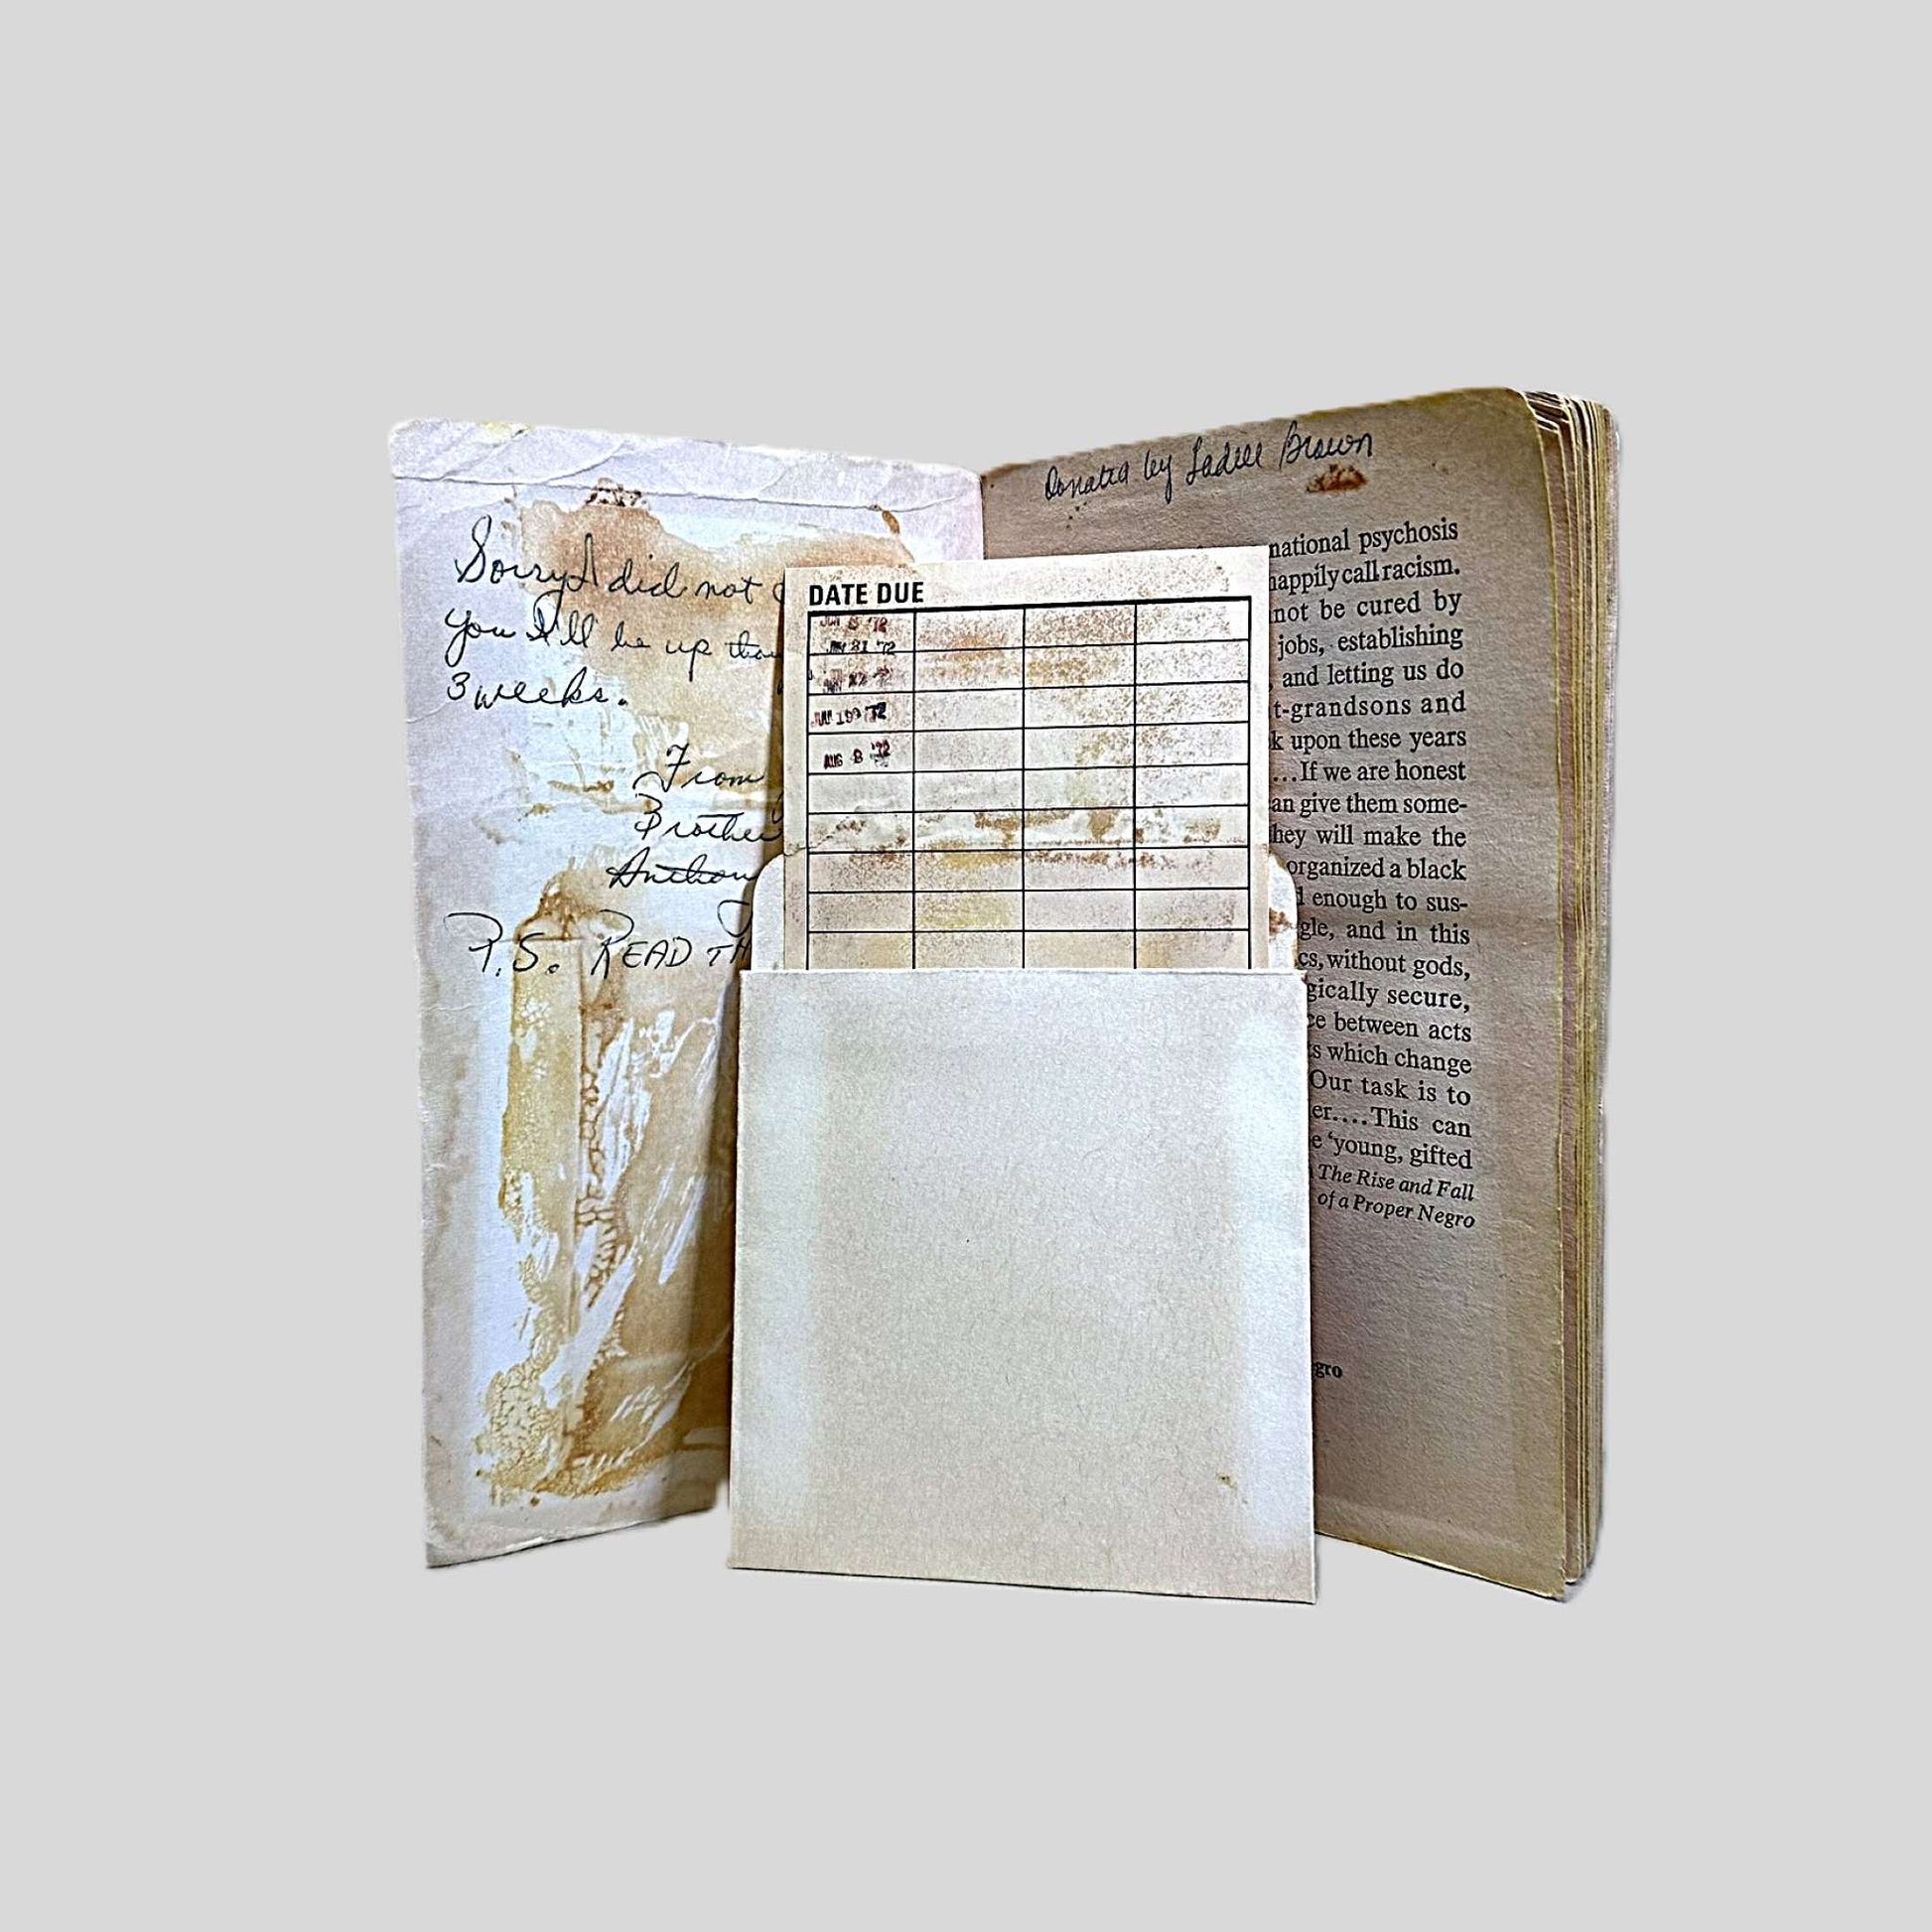 Sorry I did not
you I'll be up
3 weeks.
From
Brother
P.S. READ TH
DATE DUE
'72
31 '72
'72
JUL 19 '72
AUG 8 '72
Donated by Ladell Brown
national psychosis
happily call racism.
not be cured by
jobs, establishing
, and letting us do
t-grandsons and
k upon these years
...If we are honest
an give them some-
hey will make the
organized a black
d enough to sus-
gle, and in this
cs, without gods,
gically secure,
ce between acts
s which change
Our task is to
er....This can
e 'young, gifted
The Rise and Fall
of a Proper Negro
gro